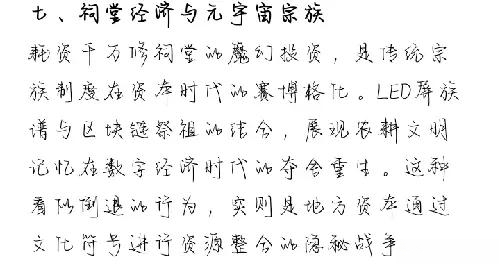 七、祠堂经济与元宇宙宗族
耗资千万修祠堂的魔幻投资，是传统宗
族制度在资本时代的赛博格化。LED屏族
谱与区块链祭祖的结合，展现农耕文明
记忆在数字经济时代的夺舍重生。这种
看似倒退的行为，实则是地方资本通过
文化符号进行资源整合的隐秘战争